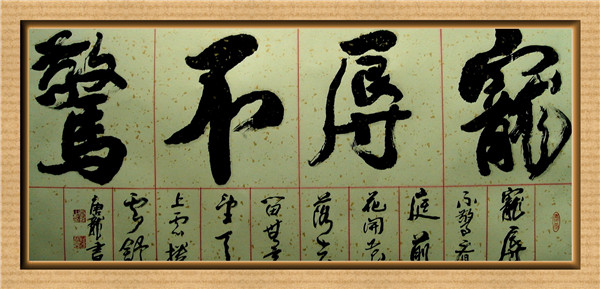 寵辱不驚
寵辱
不驚看
庭前
花開花
落去
留無意
望天
上雲捲
雲舒
書